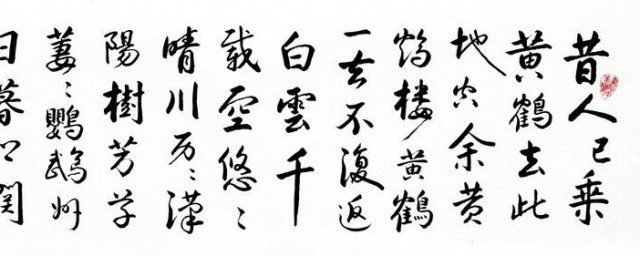 昔人已乘
黄鶴去此
地空余黄
鹤楼黄鶴
一去不復返
白雲千
載空悠〻
晴川历〻漢
陽樹芳草
萋〻鸚鵡州
日暮乡関